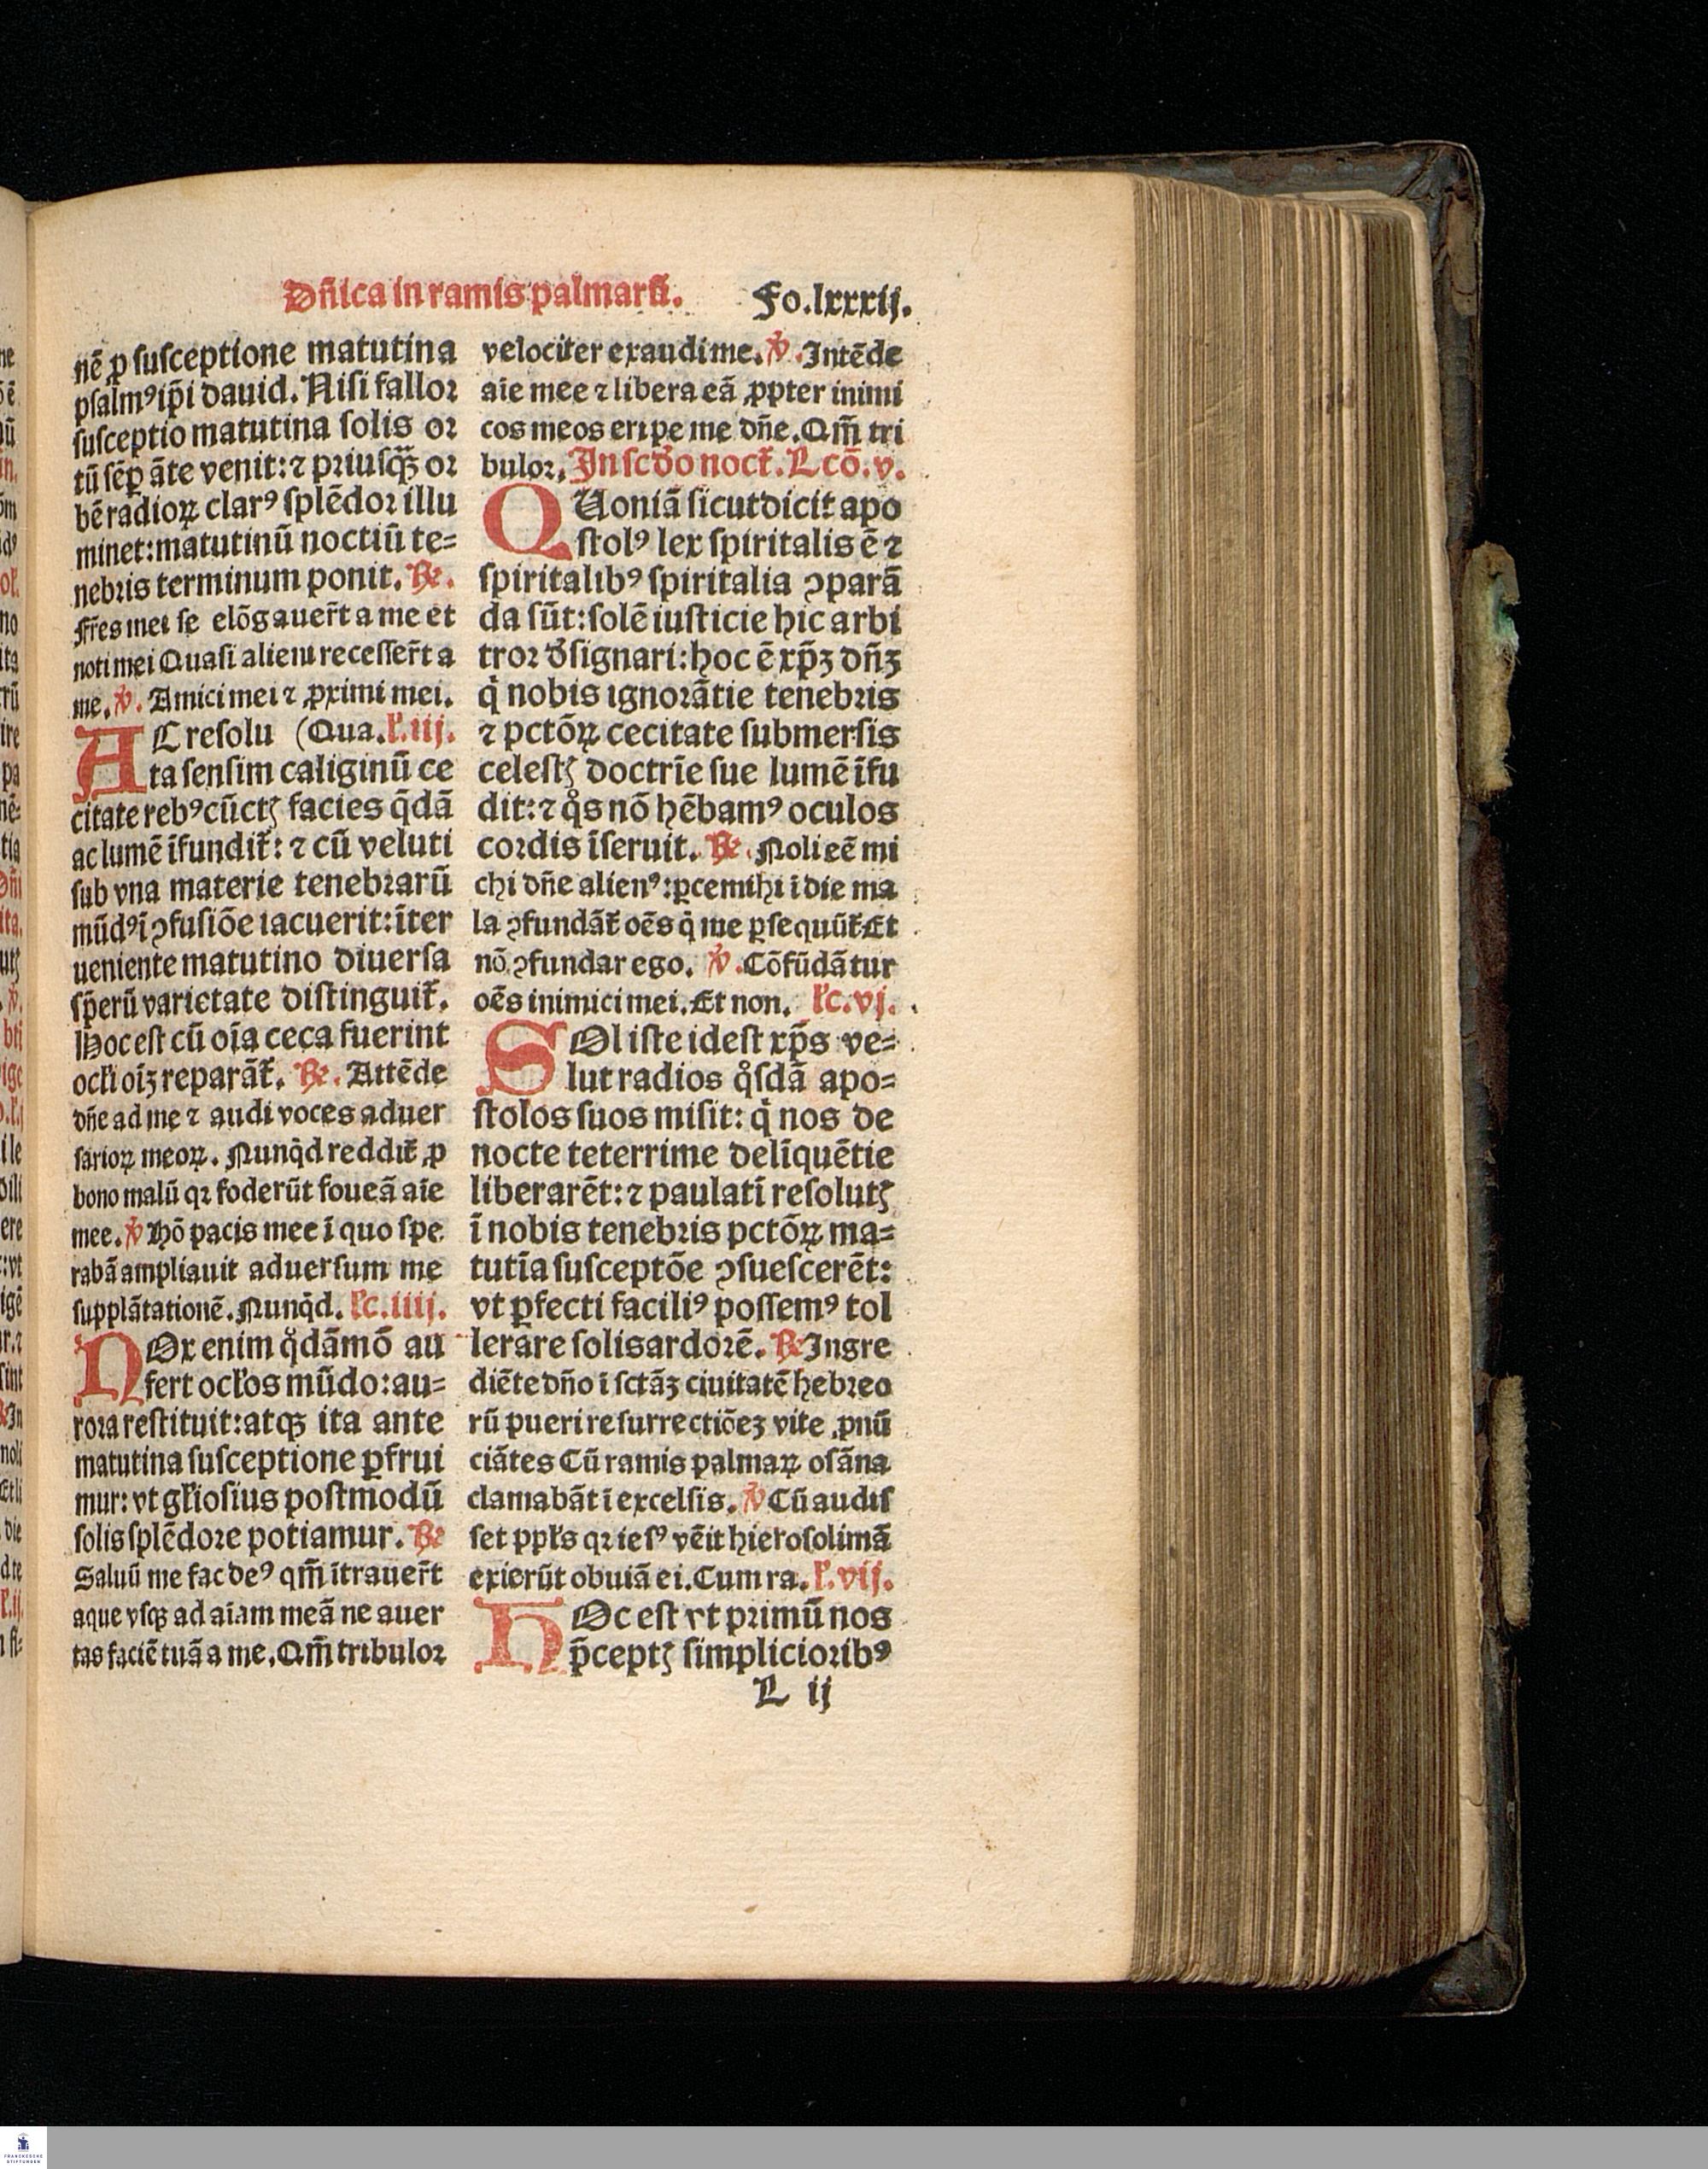 Dñica in ramis palmarū. Fo.lxxxij.
nē ꝓ ſuſceptione matutina
pſalmꝰ ip̄i dauid. Niſi fallor
ſuſceptio matutina ſolis or
tū ſēꝑ āte venit: ⁊ priuſqᷓꝫ or
bē radioꝝ clarꝰ ſplēdor illu
minet: matutinū noctiū te=
nebris terminum ponit. ℟.
Fr̄es mei ſe elōgauer̄t a me et
noti mei Quaſi alieni receſſer̄t a
me. ℣. Amici mei ⁊ ꝓximi mei.
AC reſolu (Qua. l̄.iij.
ta ſenſim caliginū ce
citate rebꝰ cūctꝭ facies q̄dā
ac lumē īfundit̄: ⁊ cū veluti
ſub vna materie tenebrarū
mūdꝰ ī ꝯfuſiōe iacuerit: īter
ueniente matutino diuerſa
ſp̄erū varietate diſtinguit̄.
Hoc eſt cū oīa ceca fuerint
ocl̄i oīꝫ reparāt̄. ℟. Attēde
dn̄e ad me ⁊ audi voces aduer
ſarioꝝ meoꝝ. Nunq̇d reddit̄ ꝓ
bono malū qꝛ foderūt foueā aīe
mee. ℣ Hō pacis mee ī quo ſpe
rabā ampliauit aduerſum me
ſupplātationē. Nunq̇d. l̄c.iiij.
NOx enim q̊dāmō au
fert ocl̄os mūdo: au=
rora reſtituit: atqꝫ ita ante
matutina ſuſceptione ꝑfrui
mur: vt gl̄ioſius poſtmodū
ſolis ſplēdore potiamur. ℟
Saluū me fac deꝰ qm̄ ītrauer̄t
aque vſqꝫ ad aīam meā ne auer
tas faciē tuā a me. Qm̄ tribulor
velociter exaudi me. ℣. Intēde
aīe mee ⁊ libera eā ꝓpter inimi
cos meos eripe me dn̄e. Qm̄ tri
bulor. In ſcd̄o noct̄. Lcō. v.
QUoniā ſicut dicit apo
ſtolꝰ lex ſpiritalis ē ⁊
ſpiritalibꝰ ſpiritalia ꝯparā
da ſūt: ſolē iuſticie hic arbi
tror d̓ſignari: hoc ē xp̄ꝫ dn̄ꝫ
q̇ nobis ignorātie tenebris
⁊ pctōꝝ cecitate ſubmerſis
celeſtꝭ doctrīe ſue lumē īfu
dit: ⁊ q̊s nō hēbamꝰ oculos
cordis īſeruit. ℟. Noli eē mi
chi dn̄e alienꝰ: ꝑce mihi ī die ma
la ꝯfundāt̄ oēs q̇ me ꝑſequūt̄ Et
nō ꝯfundar ego. ℣. Cōfūdātur
oēs inimici mei. Et non. l̄c.vj.
SOl iſte ideſt xp̄s ve=
lut radios q̊ſdā apo=
ſtolos ſuos miſit: q̇ nos de
nocte teterrime delīquētie
liberarēt: ⁊ paulatī reſolutꝭ
ī nobis tenebris pctōꝝ ma=
tutīa ſuſceptōe ꝯſueſcerēt:
vt ꝑfecti faciliꝰ poſſemꝰ tol
lerare ſolis ardorē. ℟ Ingre
diēte dn̄o ī ſctāꝫ ciuitatē hebreo
rū pueri reſurrectiōeꝫ vite ꝓnū
ciātes Cū ramis palmaꝝ oſāna
clamabāt ī excelſis. ℣ Cū audiſ
ſet ppl̄s qꝛ ieſꝰ vēit hieroſolimā
exierūt obuiā ei. Cum ra. l̄.vij.
HOc eſt vt primū nos
p̄ceptꝭ ſimplicioribꝰ
L ij
FRANCKESCHE
STIFTUNGEN